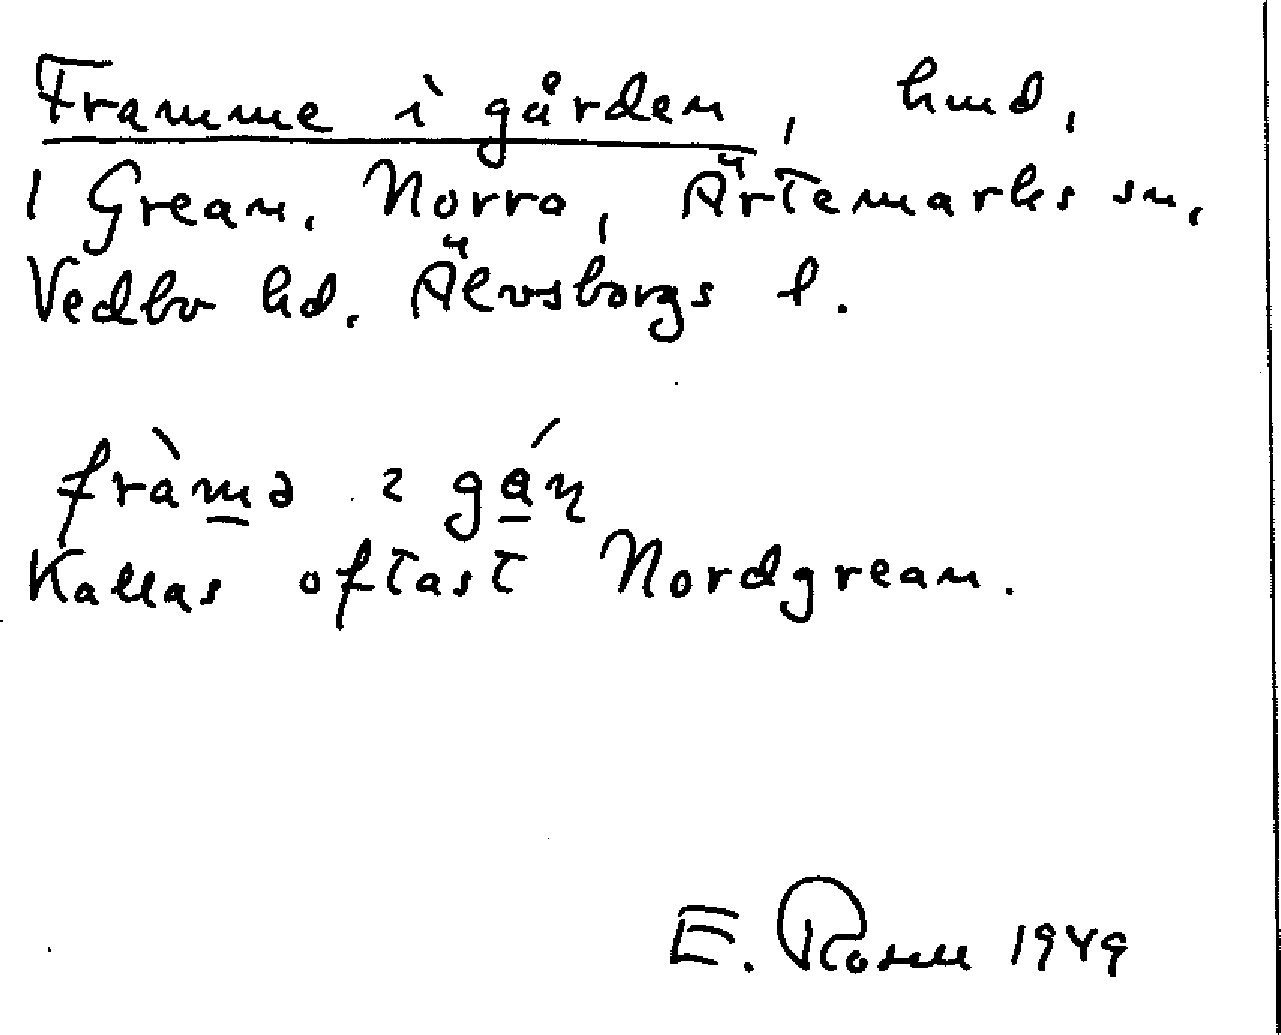 Framme i gården, hmd,
1 Grean, Norra, Ärtemarks sn,
Vedbo hd. Älvsborgs l.
fràmə ɩ gán
Kallas oftast Nordgrean.
E. Rosell 1949